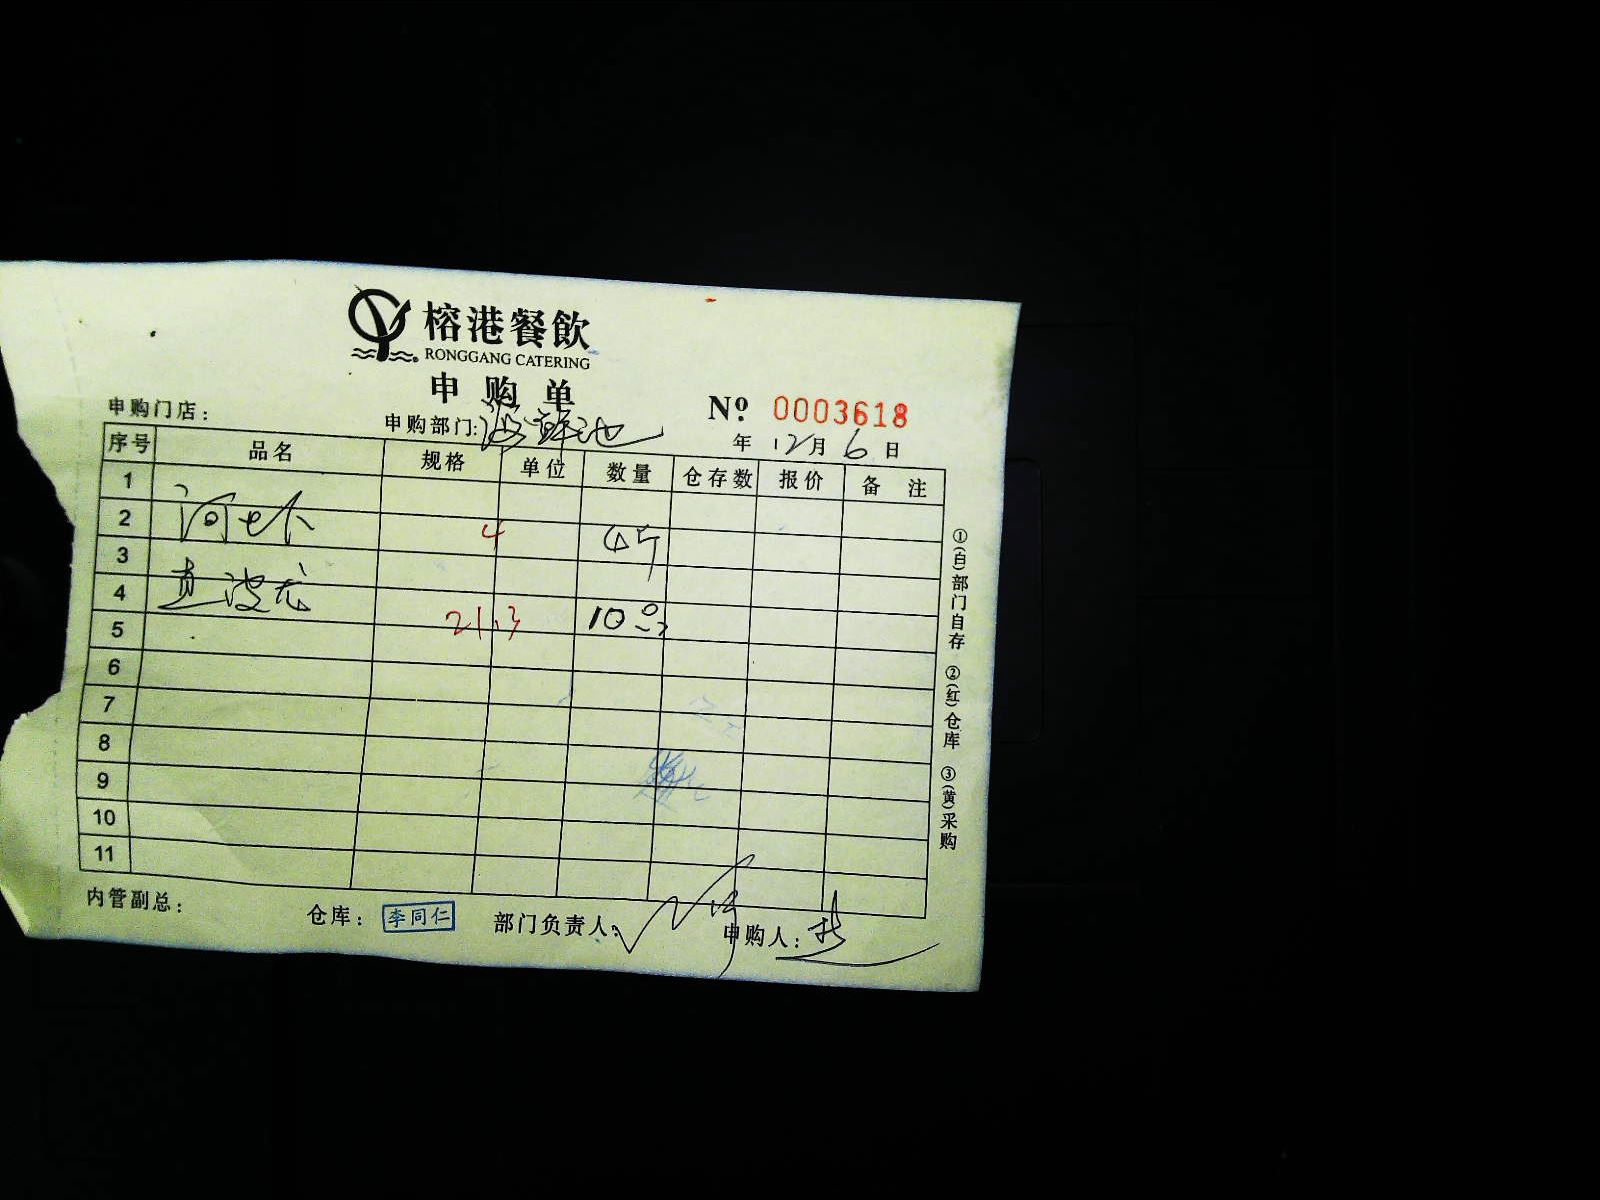 榕港餐飲
RONGGANG CATERING
申购单
№ 0003618
申购门店：
申购部门：海鲜池
年 12月 6 日
序号 品名 规格 单位 数量 仓存数 报价 备注
1
2 4 4斤
3
4 直波龙
5 21.3 10
6
7
8
9
10
11
①(白)部门自存 ②(红)仓库 ③(黄)采购
内管副总：
仓库：李同仁
部门负责人：
申购人：